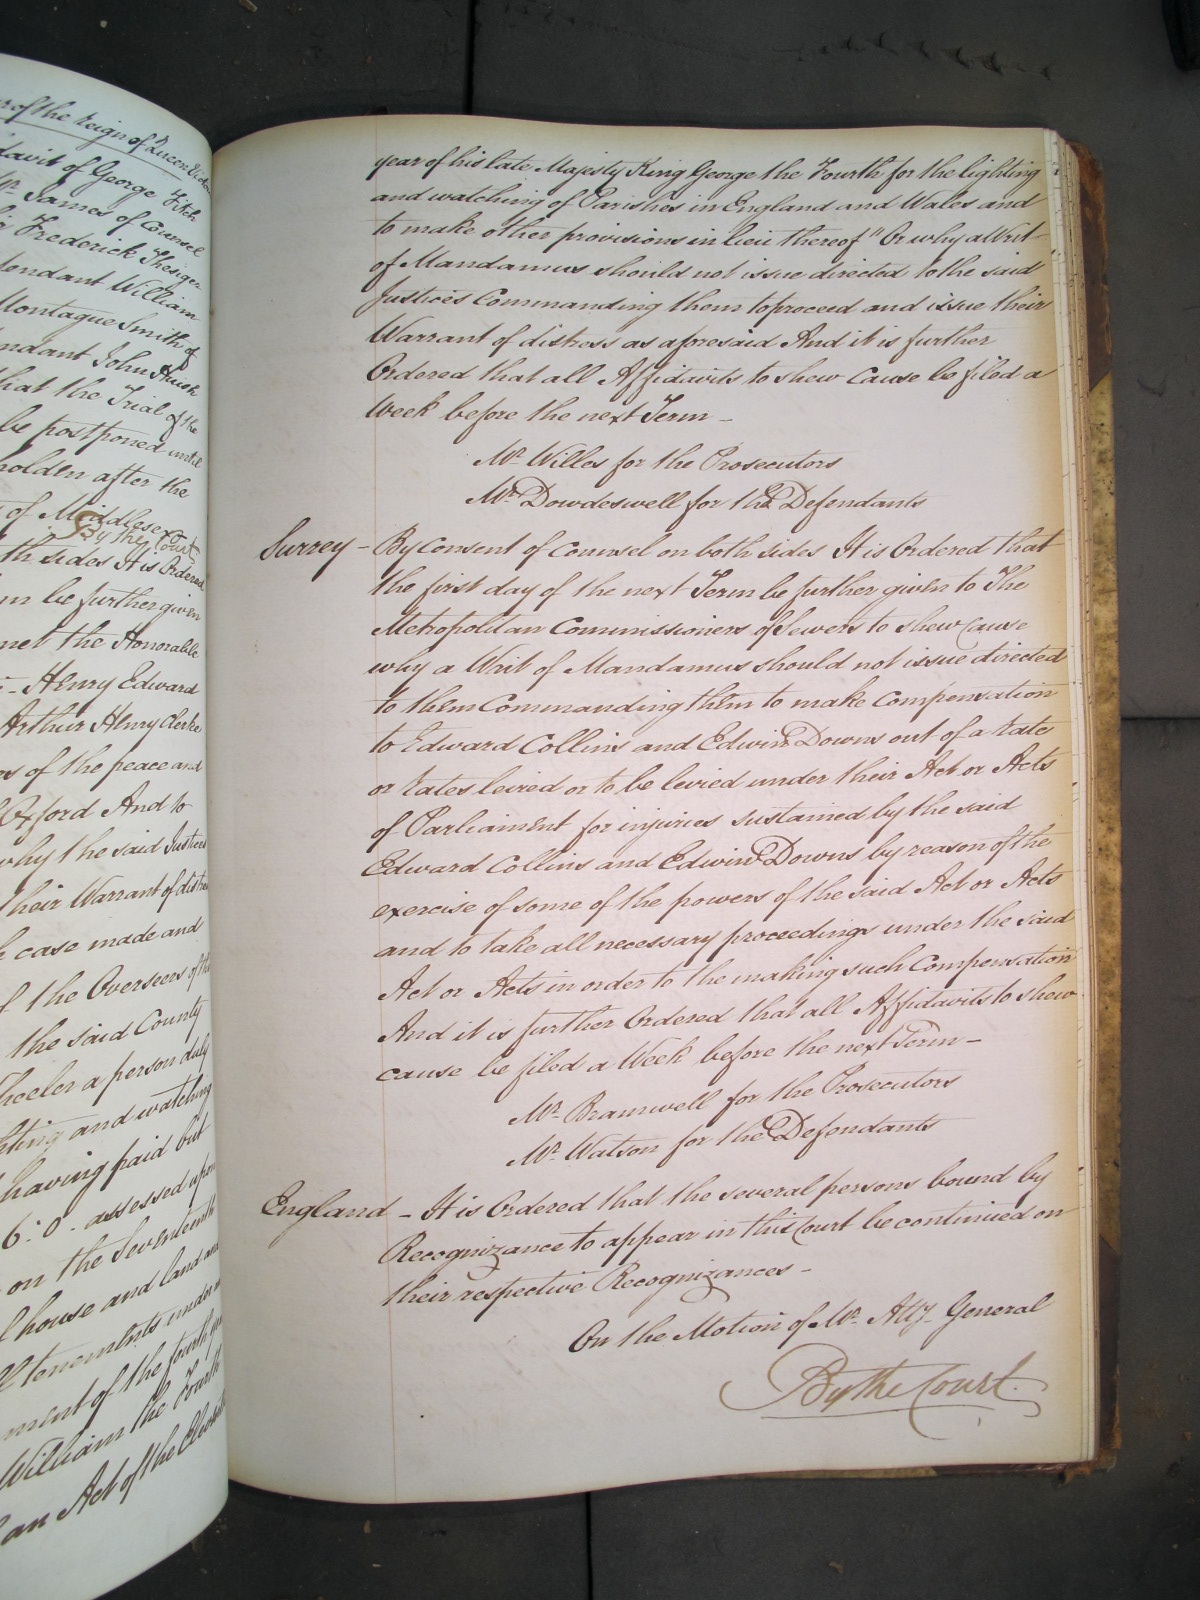 r of the Reign of Queen Victoria
davit of George Fitch
Mr James of Counsel
Sir Frederick Thesiger
fendant William
Montague Smith of
ndant John
that the Trial of the
be postponed until
holden after the
of Middlesex
By the Court
th sides It is Ordered
rm be further given
net the Honorable
Henry Edward
Arthur Henry Clerke
es of the peace and
Oxford And to
why the said Justices
their Warrant of distress
h case made and
f the Overseers of the
the said County
heeler a person duly
hting and watching
having paid but
6: 0 assessed upon
on the Seventeenth
d house and land and
ll tenements under
ment of the fourth year
William the Fourth
an Act of the Eleventh
year of his late Majesty King George the Fourth for the lighting
and watching of Parishes in England and Wales and
to make other provisions in lieu thereof" Or why a Writ
of Mandamus should not issue directed to the said
Justices Commanding them to proceed and issue their
Warrant of distress as aforesaid And it is further
Ordered that all Affidavits to shew Cause be filed a
Week before the next Term –
Mr. Willes for the Prosecutors
Mr. Dowdeswell for the Defendants
Surrey – By consent of counsel on both sides It is Ordered that
the first day of the next Term be further given to The
Metropolitan Commissioners of Sewers to shew Cause
why a Writ of Mandamus should not issue directed
to them Commanding them to make compensation
to Edward Collins and Edwin Downs out of a rate
or rates levied or to be levied under their Act or Acts
of Parliament for injuries sustained by the said
Edward Collins and Edwin Downs by reason of the
exercise of some of the powers of the said Act or Acts
and to take all necessary proceedings under the said
Act or Acts in order to the making such Compensation
And it is further Ordered that all Affidavits to shew
cause be filed a Week before the next Term –
Mr. Bramwell for the Prosecutors
Mr. Watson for the Defendants
England – It is Ordered that the several persons bound by
Recognizance to appear in this Court be continued on
their respective Recognizances –
On the Motion of Mr. Atty. General
By the Court.